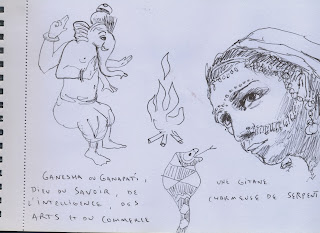 GANESHA OU GANAPATI,
DIEU DU SAVOIR, DE
L'INTELLIGENCE, DES
ARTS ET DU COMMERCE
UNE GITANE
CHARMEUSE DE SERPENT